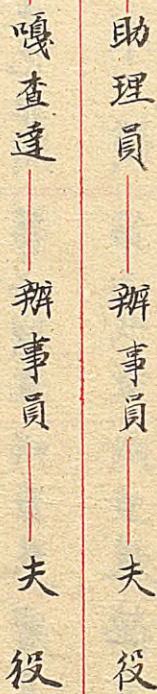 助理員——辦事員——夫役
嘎查達——辦事員——夫役